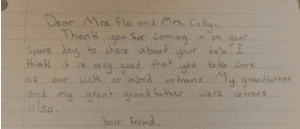 Dear Mrs. Flo and Mrs. Cally,
Thank you for coming in on your
spare day to share about your jobs. I
think it is very good that you take care
of our sick or injerd vetrans. My grandfather
and my great grandfather were vetrans
also.
Your freind,